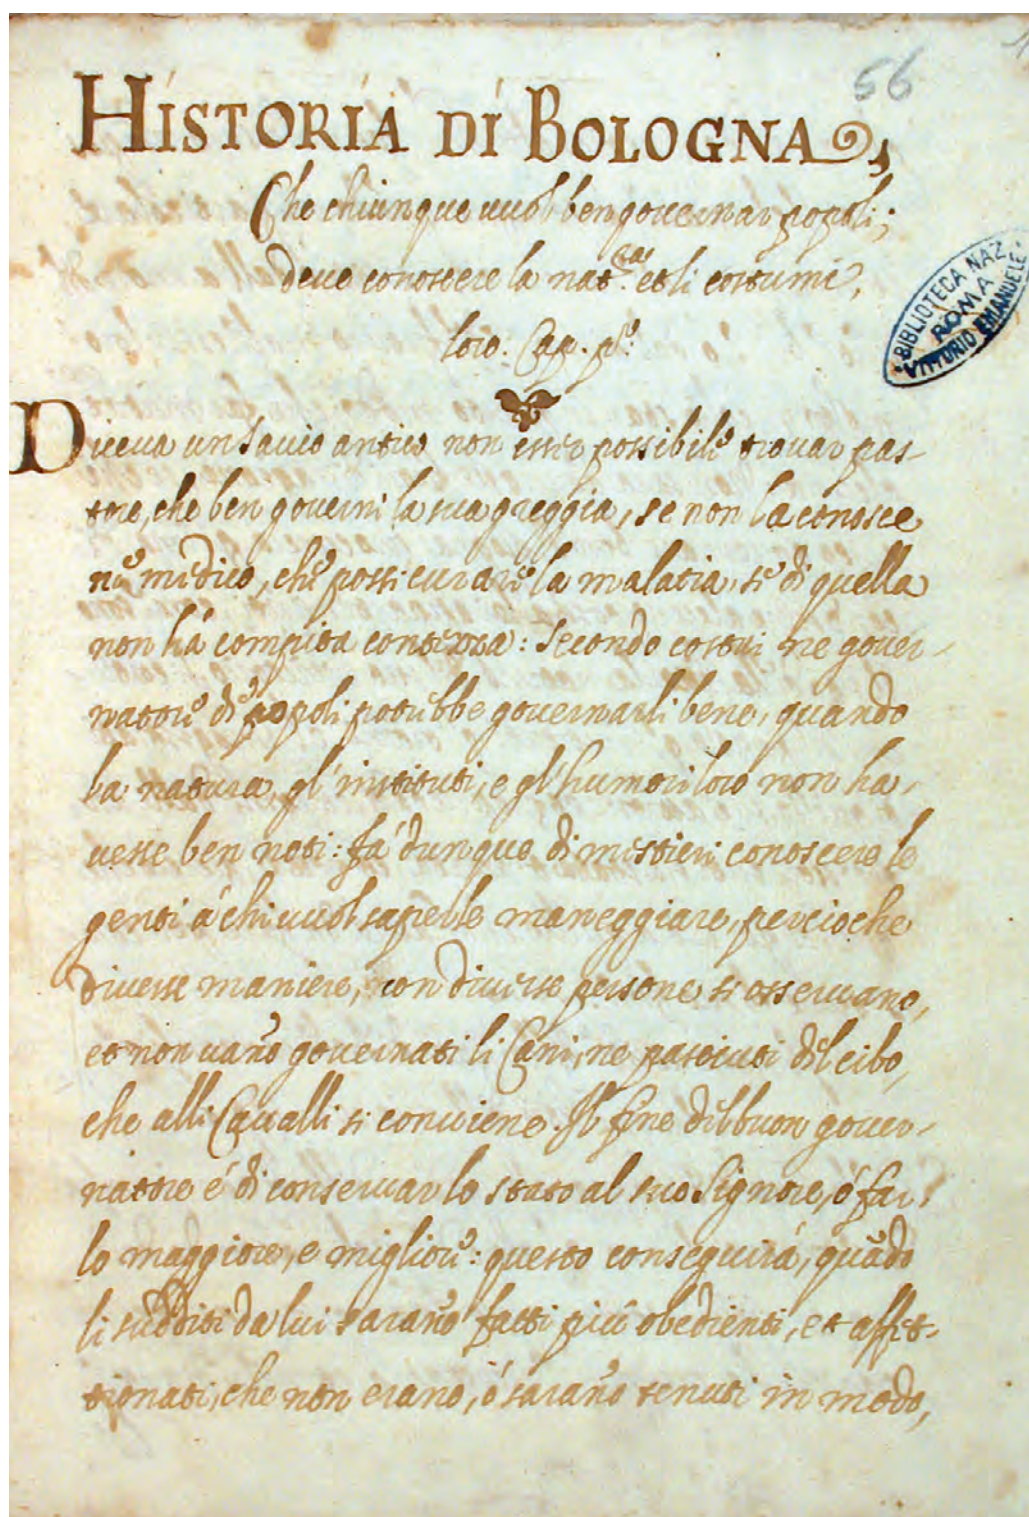 56
HISTORIA DI BOLOGNA,
Che chiunque uuol ben gouernar popoli;
deue conoscere la nat.ra et li costumi,
loro. Cap. p.o
Diceua un sauio antico non esser possibile trouar pas-
tore, che ben gouerni la sua greggia, se non la conosce
ne medico, che possi curare la malatia, se di quella
non há compita contezza: secondo costui ne gouer-
natore di popoli potrebbe gouernarli bene, quando
la natura, gl'instituti, e gl'humori loro non ha-
uesse ben noti: fá dunque di mistieri conoscere le
genti á chi uuol saperle maneggiare, percioche
diuerse maniere, con diuerse persone si osseruano,
et non uano gouernati li Cani, ne pasciuti del cibo,
che alli Caualli si conuiene. Il fine del buon gouer-
natore é di conseruar lo stato al suo Signore, ó far-
lo maggiore, e migliore: questo conseguirá, quãdo
li sudditi da lui sarano fatti piú obedienti, et affet-
tionati, che non erano, ó sarano tenuti in modo,
BIBLIOTECA NAZ.
ROMA
VITTORIO EMANUELE